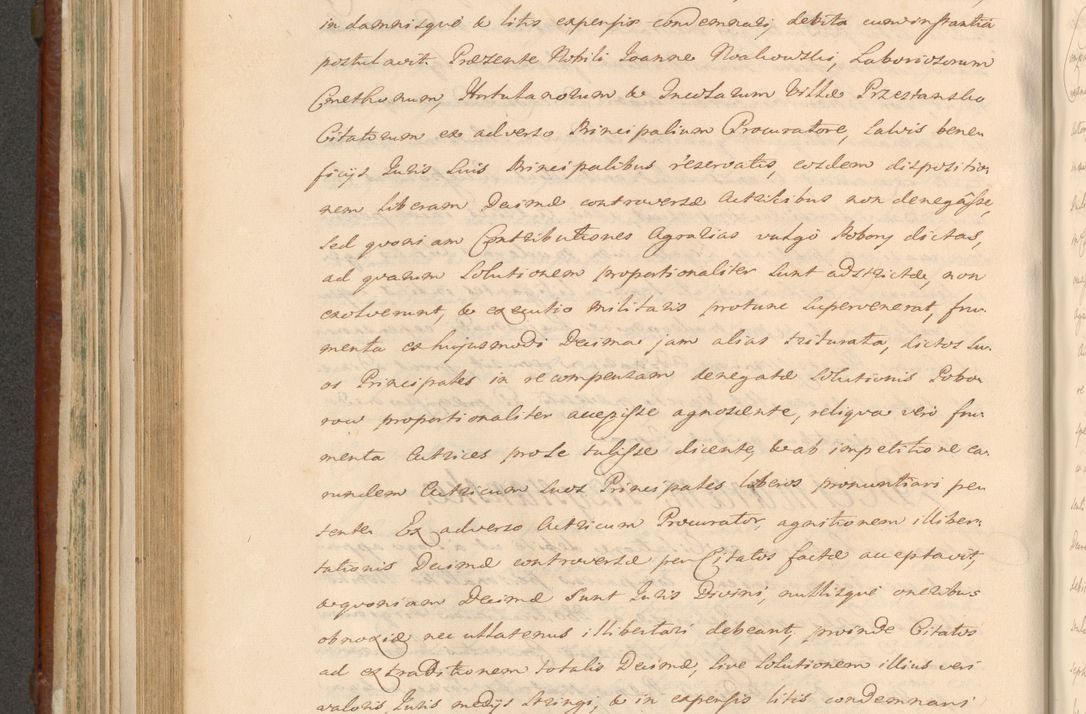 in damnisque & litis expensis condemnari, debita cum instantia
postulavit. Præzente Nobili Joanne Noakowski, Laboriosorum
Cmethonum, Hortulanorum & Incolarum Villæ Przestansko
Citatorum ex adverso Principalium Procuratore, salvis bene-
ficijs Juris suis Principalibus reservatis, eosdem dispositio-
nem liberam Decimæ controversæ Actricibus non denegasse,
sed quoniam Contributiones Agrarias vulgo Pobory dictas,
ad quarum solutionem proportionaliter sunt adstrictæ, non
exolverunt, & executio Militaris protunc supervenerat, fru-
menta ex hujusmodi Decima jam alias triturata, dictos su-
os Principales in recompensam denegatæ solutionis Pobo-
row proportionaliter accepisse agnoscente, reliqua vero fru-
menta Actrices pro se tulisse dicente, & ab impetitione ea-
rundem Actricum suos Principales liberos pronuntiari pe-
tente. Ex adverso Actricum Procurator, agnitionem illiber-
tationis Decimæ controversæ per Citatos factæ acceptavit,
& quoniam Decimæ sunt Juris Divini, nullisque oneribus
obnoxiæ nec ullatenus illibertari debeant, proinde Citatos
ad extraditionem totalis Decimæ, sive solutionem illius veri
valoris, Juris medijs stringi, & in expensis litis condemnari